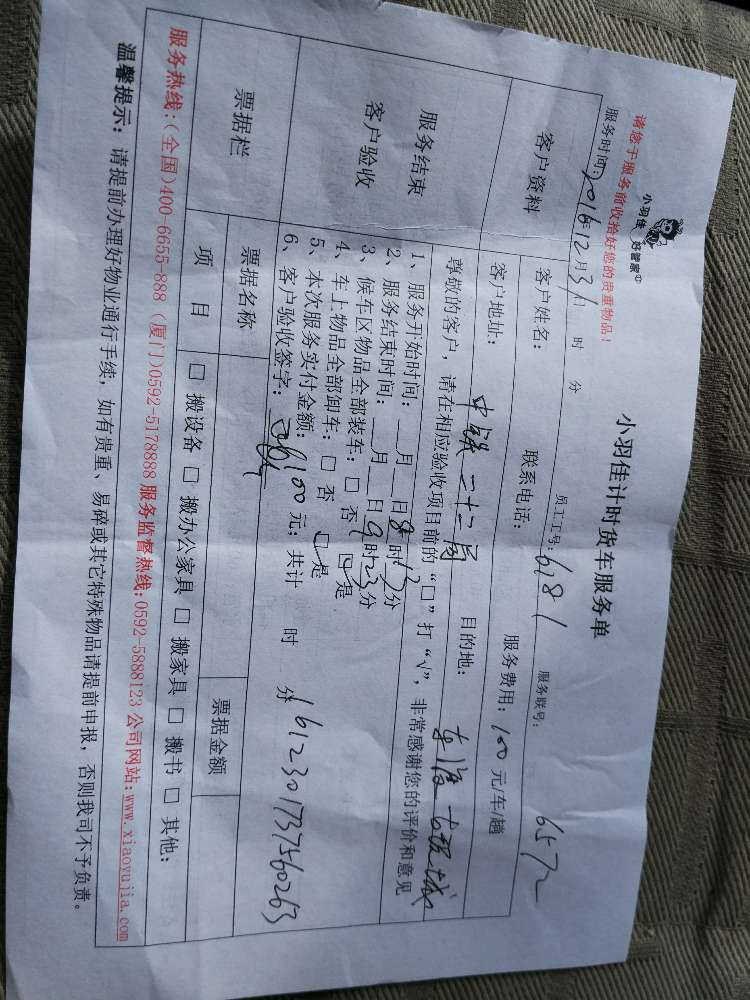 小羽佳 好管家
请您于服务前收拾好您的贵重物品！
小羽佳计时货车服务单
服务时间：2016年12月31日 时 分 员工工号：6181 服务联号： 6572
客户资料
客户姓名： 联系电话： 服务费用：100元/车/趟
客户地址：中铁二十二局 目的地：
服务结束
客户验收
尊敬的客户，请在相应验收项目前的“□”打“√”，非常感谢您的评价和意见
1、服务开始时间：__月__日8时13分
2、服务结束时间：__月__日9时23分
3、候车区物品全部装车：□ 否 □是
4、车上物品全部卸车：□ 否 □是
5、本次服务实付金额：100元；共计 时 分
6、客户验收签字：
1612301737560263
票据栏
票据名称 票据金额
项 目 □ 搬设备 □ 搬办公家具 □ 搬家具 □ 搬书 □ 其他：
服务热线：(全国)400-6655-888 (厦门)0592-5178888 服务监督热线：0592-5888123 公司网站：www.xiaoyujia.com
温馨提示：请提前办理好物业通行手续，如有贵重、易碎或其它特殊物品请提前申报，否则我司不予负责。